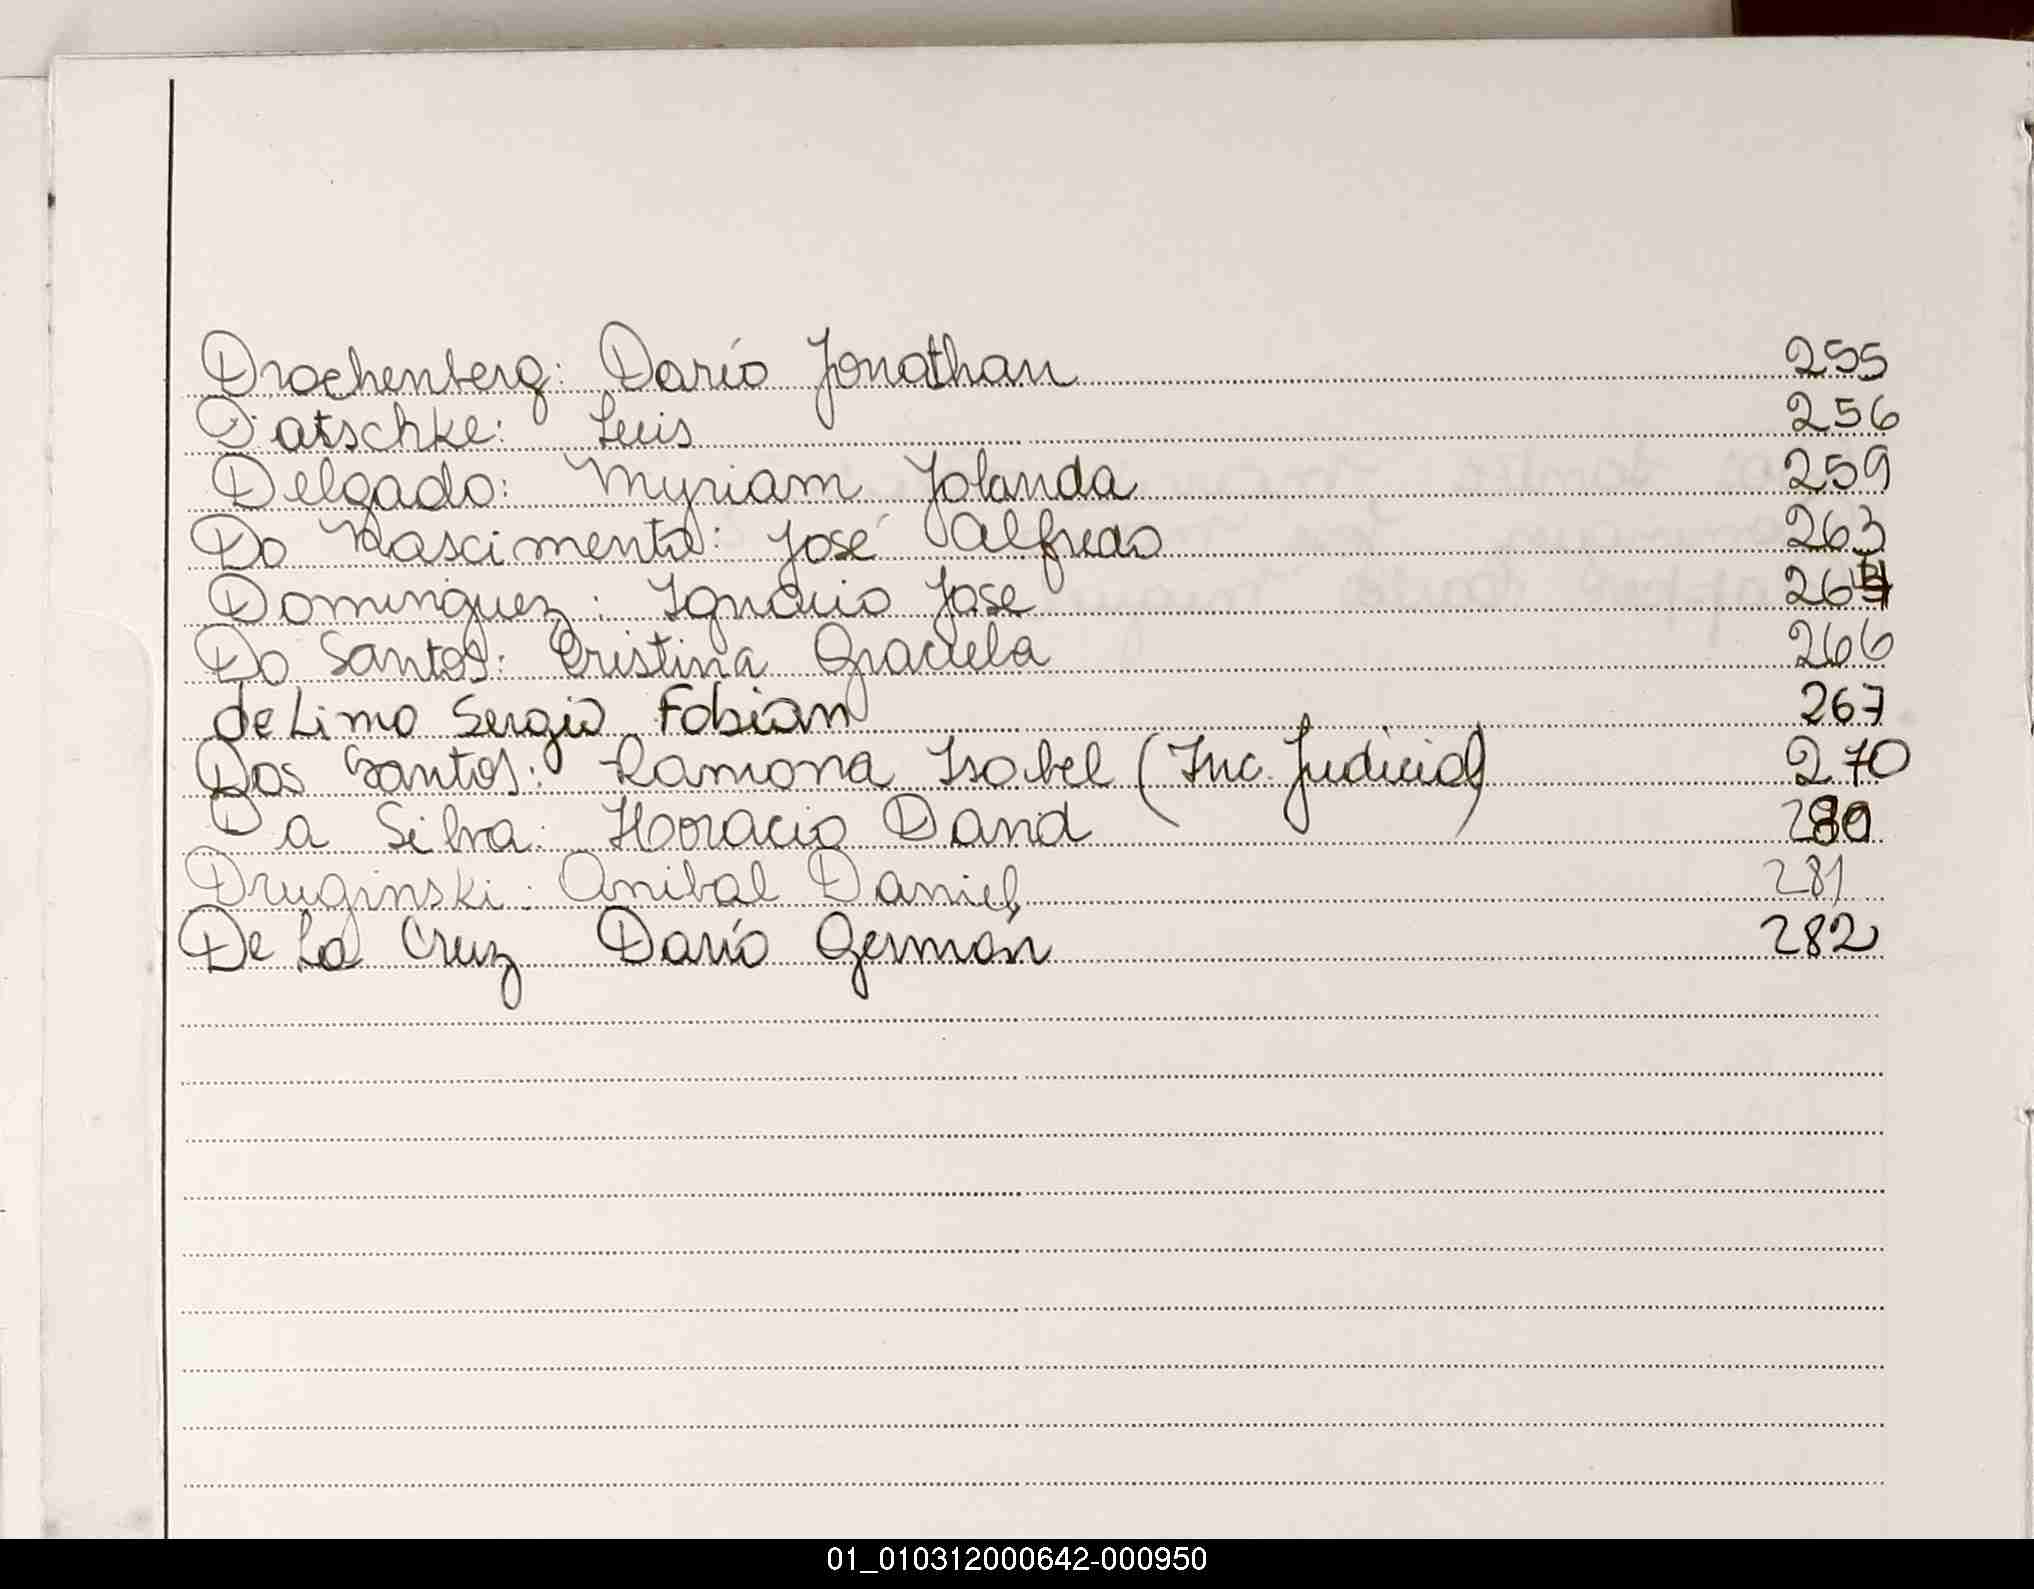 Drachenberg: Darío Jonathan 255
Datschke: Luis 256
Delgado: Myriam Yolanda 259
Do Nascimento: José Alfredo 263
Dominguez: Ignacio Jose 264
Do Santos: Cristina Graciela 266
de Lima Sergio Fabian 267
Dos Santos: Ramona Isabel (Inc. Judicial) 270
Da Silva: Horacio David 280
Druginski: Anibal Daniel 281
De La Cruz Darío Germán 282
01_010312000642-000950